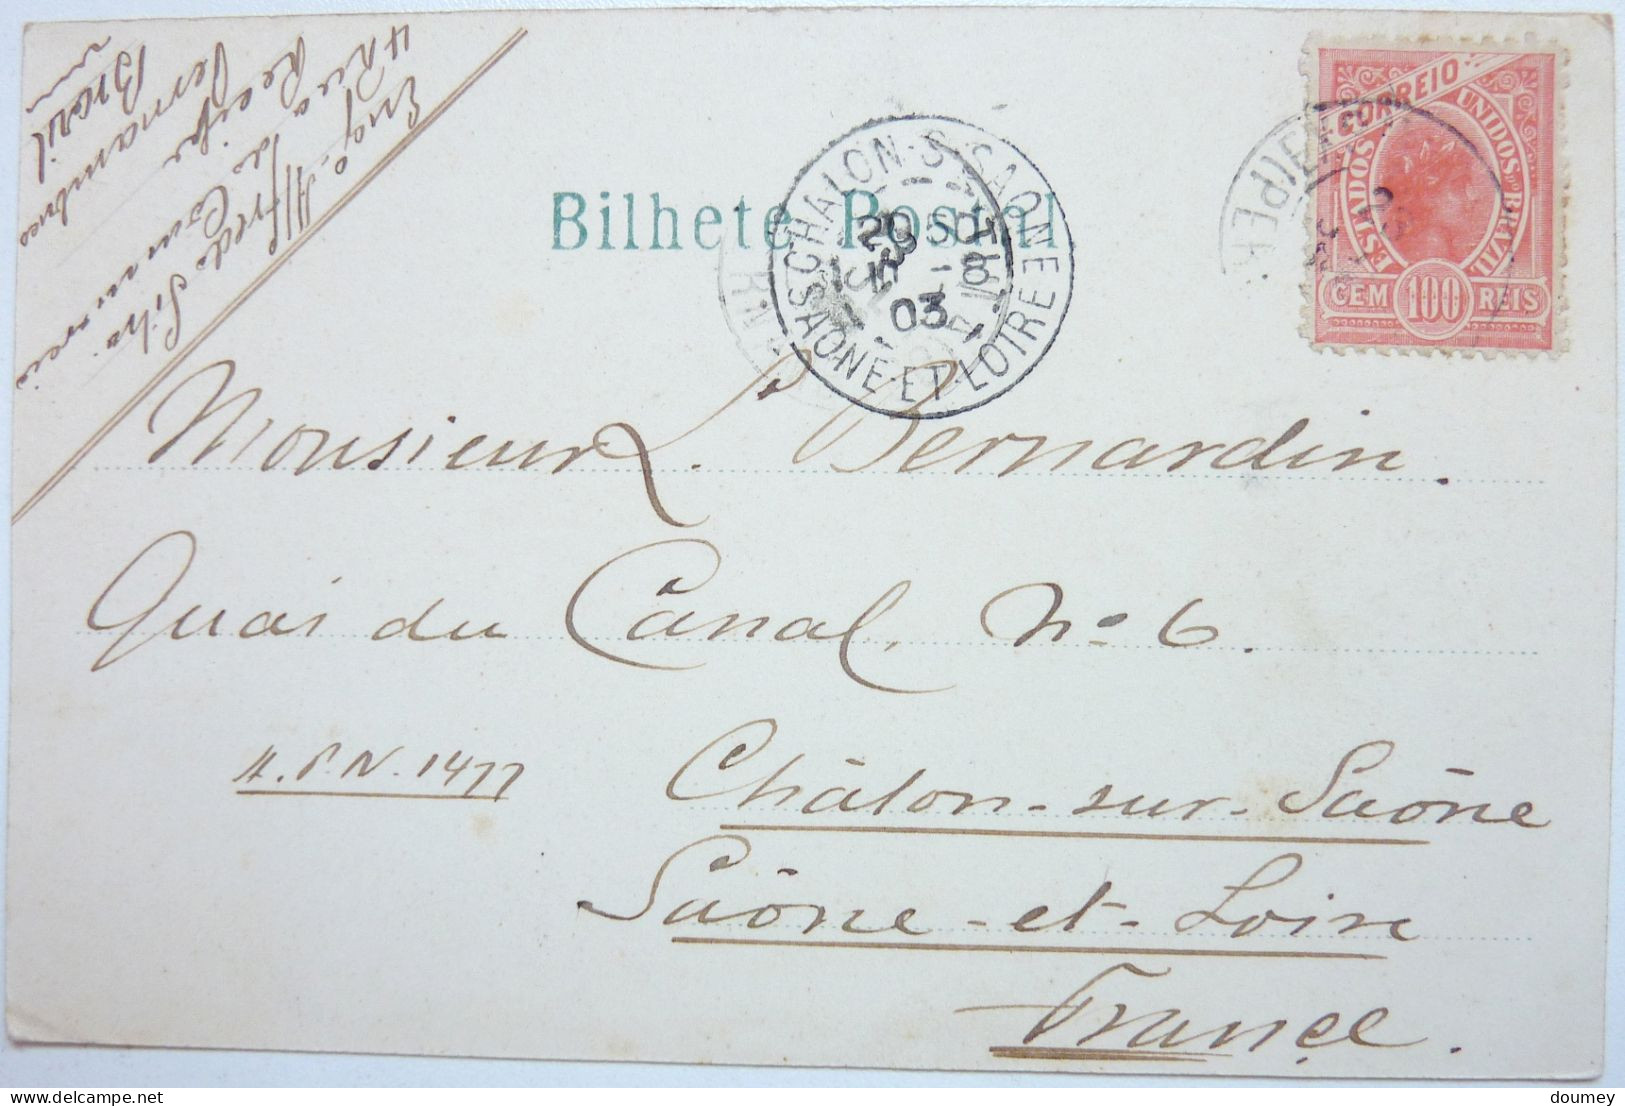 Engo. Alfredo Silva
4 Rua do Commercio
Recife
Pernambuco
Brazil
Bilhete Postal
CORREIO
ESTADOS UNIDOS DO BRAZIL
CEM 100 REIS
CHALON-S-SAONE
20
03
SAONE-ET-LOIRE
Monsieur L. Bernardin.
Quai du Canal, No 6.
A.P.N. 1477
Châlon-sur-Saône
Saône-et-Loire
France.
doumey